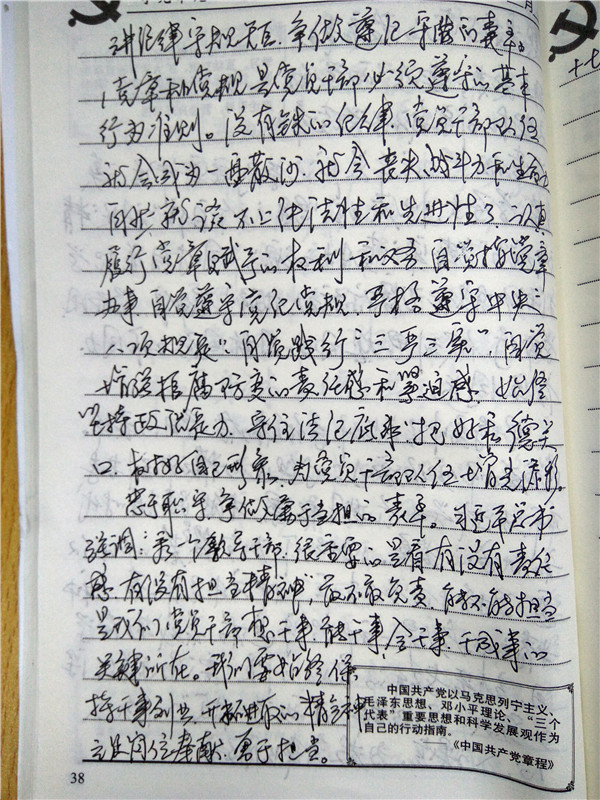 讲纪律守规矩，争做遵纪守法的表率
，党章和党规是党员干部必须遵守的基本
行为准则。没有铁的纪律，党员干部队伍
就会成为一盘散沙，就会丧失战斗力和生命力
自然就谈不上纯洁性和先进性了，认真
履行党章赋予的权利和义务，自觉按党章
办事，自觉遵守党纪党规，严格遵守中央
八项规定"，自觉践行"三严三实"，自觉
增强拒腐防变的责任感和紧迫感，始终
坚持政治定力，守住法纪底线，把好私德关
口，树好自己形象，为党员干部队伍增光添彩。
忠于职守争做勇于担当的表率。习近平总书
强调：看一个领导干部，很重要的是看有没有责任
感，有没有担当精神"，敢不敢负责，能不能担当
是我们党员干部想干事，能干事，会干事，干成事的
关键所在。我们要始终保
持干事创业、开拓进取的精气神
立足岗位奉献，勇于担当。
中国共产党以马克思列宁主义、
毛泽东思想、邓小平理论、"三个
代表"重要思想和科学发展观作为
自己的行动指南。
——《中国共产党章程》
38
十七
月